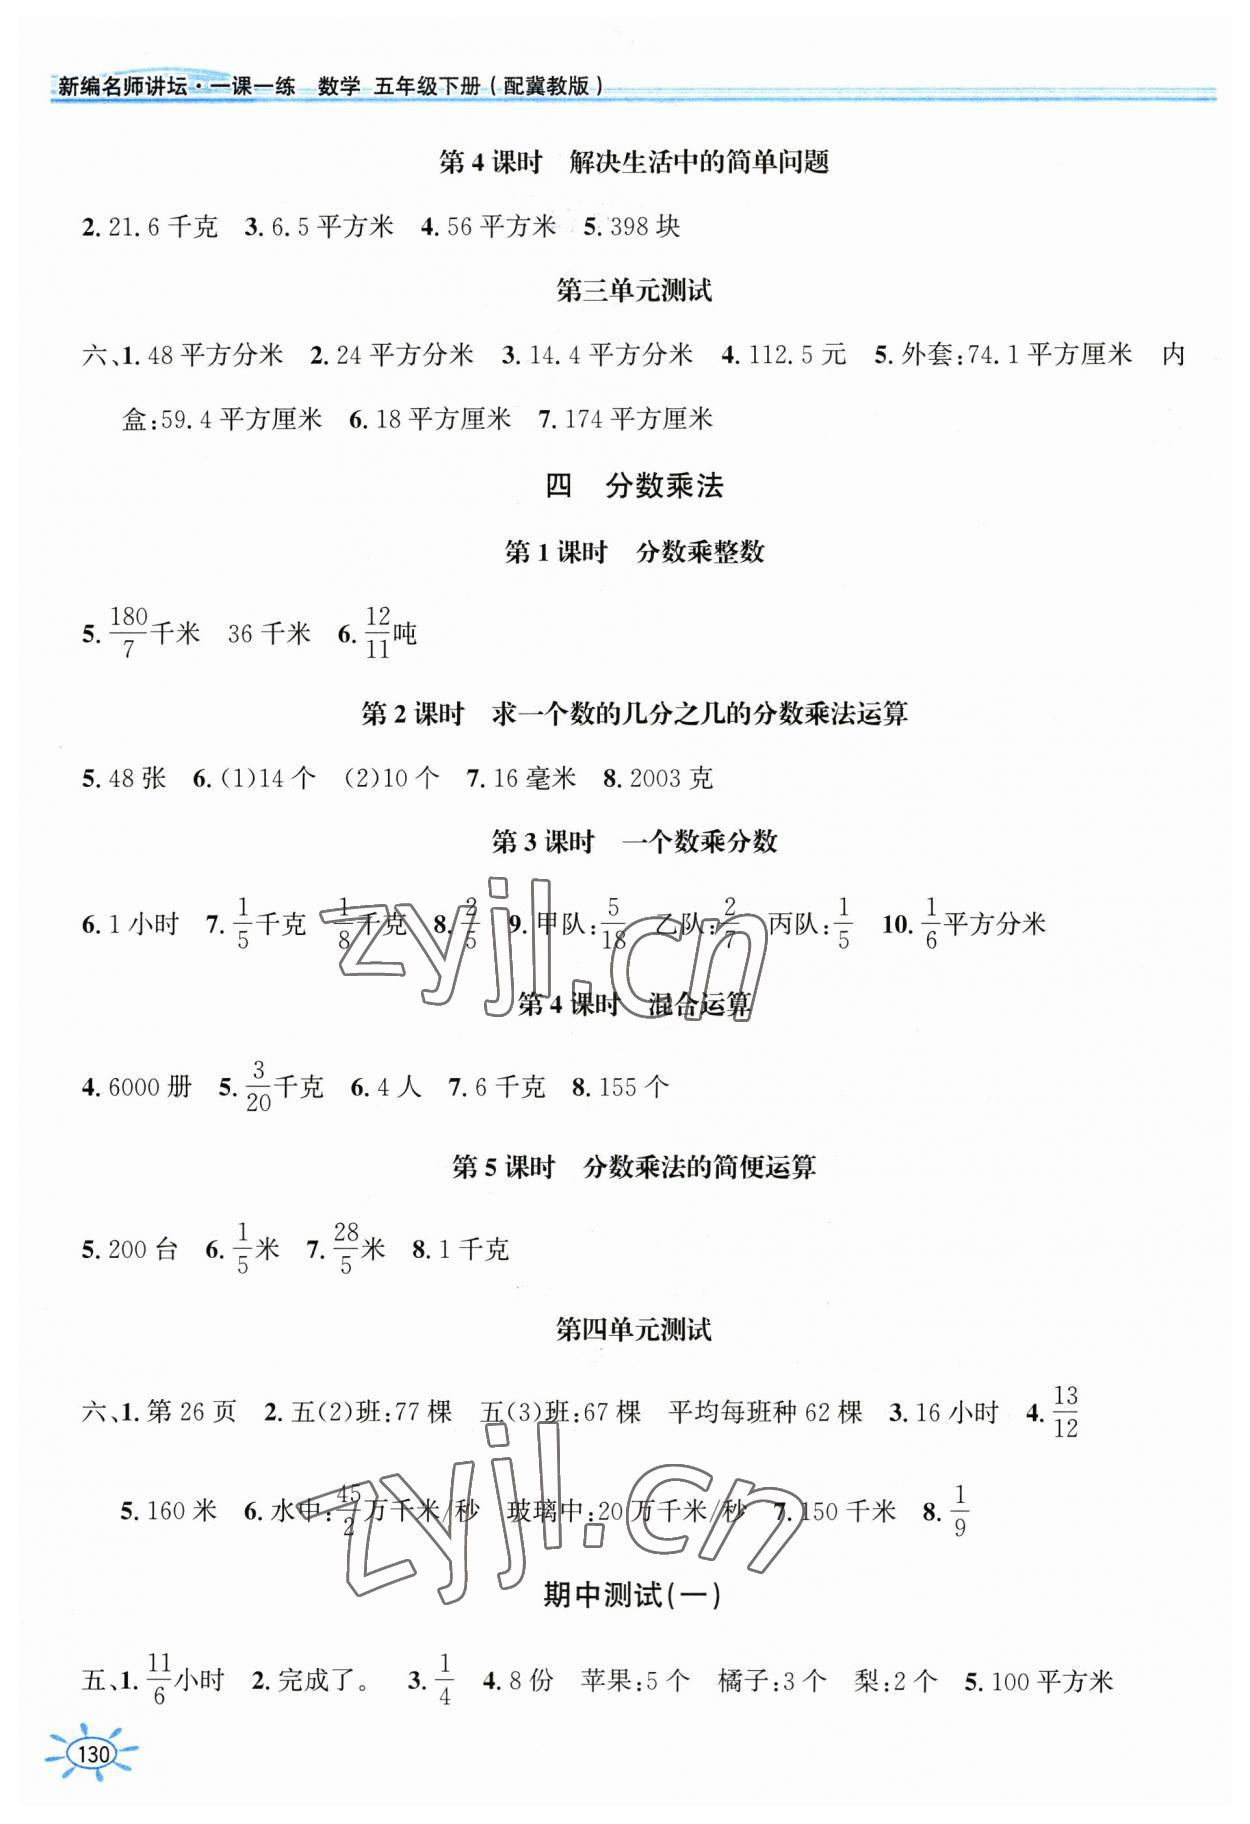 新编名师讲坛·一课一练 数学 五年级下册(配冀教版)
第4课时 解决生活中的简单问题
2. 21.6千克 3. 6.5平方米 4. 56平方米 5. 398块
第三单元测试
六、1. 48平方分米 2. 24平方分米 3. 14.4平方分米 4. 112.5元 5. 外套:74.1平方厘米 内
盒:59.4平方厘米 6. 18平方厘米 7. 174平方厘米
四 分数乘法
第1课时 分数乘整数
5. 180/7千米 36千米 6. 12/11吨
第2课时 求一个数的几分之几的分数乘法运算
5. 48张 6. (1)14个 (2)10个 7. 16毫米 8. 2003克
第3课时 一个数乘分数
6. 1小时 7. 1/5千克 1/8千克 8. 2/5 9. 甲队:5/18 乙队:2/7 丙队:1/5 10. 1/6平方分米
zyjl.cn
第4课时 混合运算
4. 6000册 5. 3/20千克 6. 4人 7. 6千克 8. 155个
第5课时 分数乘法的简便运算
5. 200台 6. 1/5米 7. 28/5米 8. 1千克
第四单元测试
六、1. 第26页 2. 五(2)班:77棵 五(3)班:67棵 平均每班种62棵 3. 16小时 4. 13/12
5. 160米 6. 水中:45/2万千米/秒 玻璃中:20万千米/秒 7. 150千米 8. 1/9
zyjl.cn
期中测试(一)
五、1. 11/6小时 2. 完成了。 3. 1/4 4. 8份 苹果:5个 橘子:3个 梨:2个 5. 100平方米
130